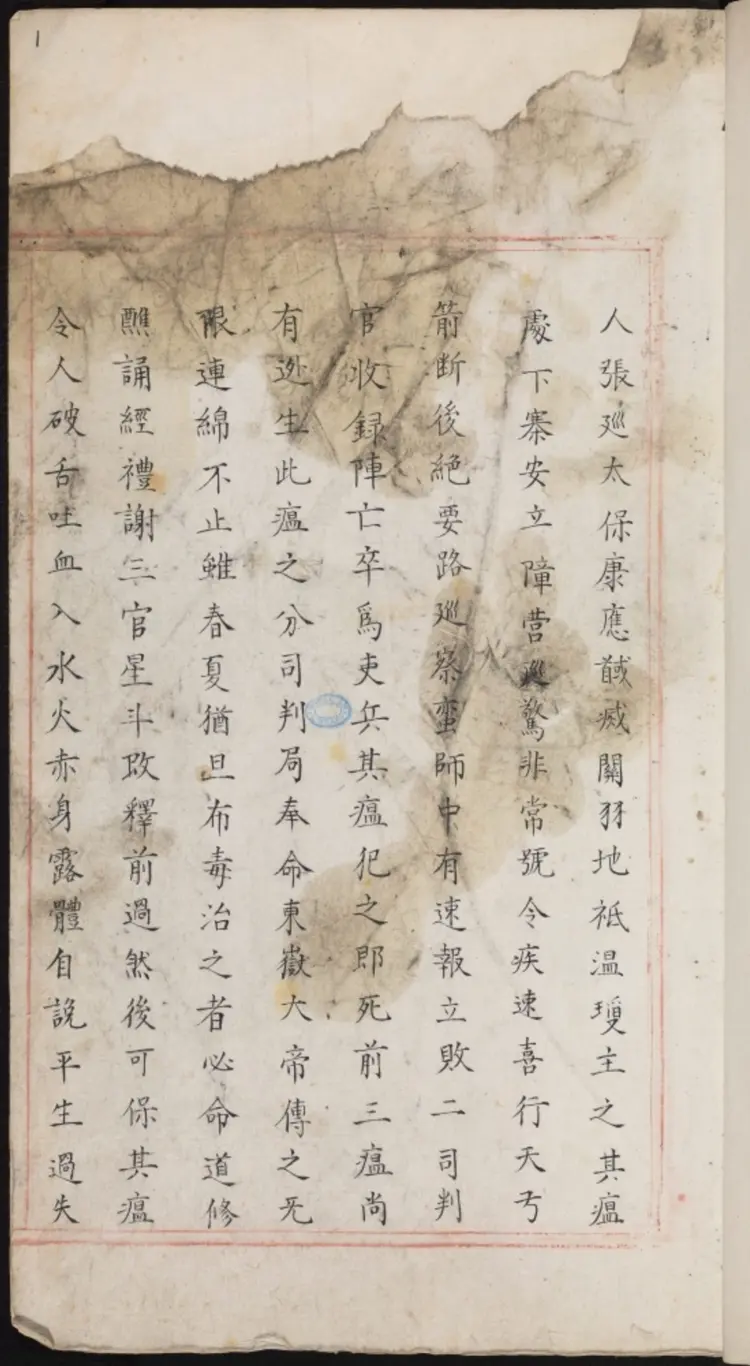 1
人張廵太保康應馘㓕關羽地祇温瓊主之其瘟
處下寨安立障营廵驚非常號令疾速喜行天弓
箭断後絕要路廵察蛮師中有速報立敗二司判
官收録陣亡卒爲吏兵其瘟犯之即死前三瘟尚
有逊生此瘟之分司判局奉命東嶽大帝傳之旡
限連綿不止雖春夏猶旦布毒治之者必命道修
醮誦經禮謝三官星斗改釋前過然後可保其瘟
令人破舌吐血入水火赤身露體自說平生過失